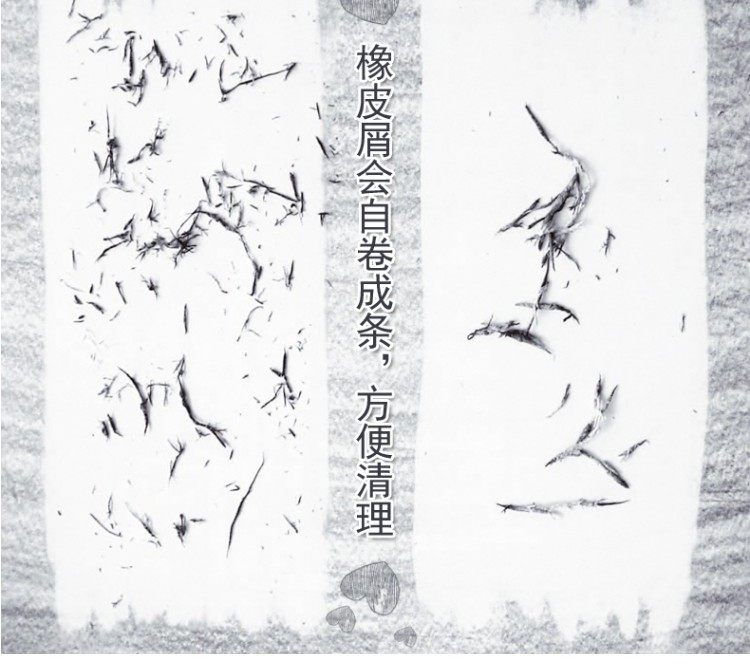 橡皮屑会自卷成条，方便清理